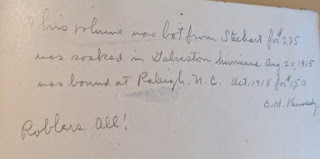 This volume was bot from Stechert for $3.75
was soaked in Galveston hurricane Aug. 20, 1915
was bound at Raleigh. N.C. Oct. 1916 for $1.50
C. H. Kennedy
Robbers All!